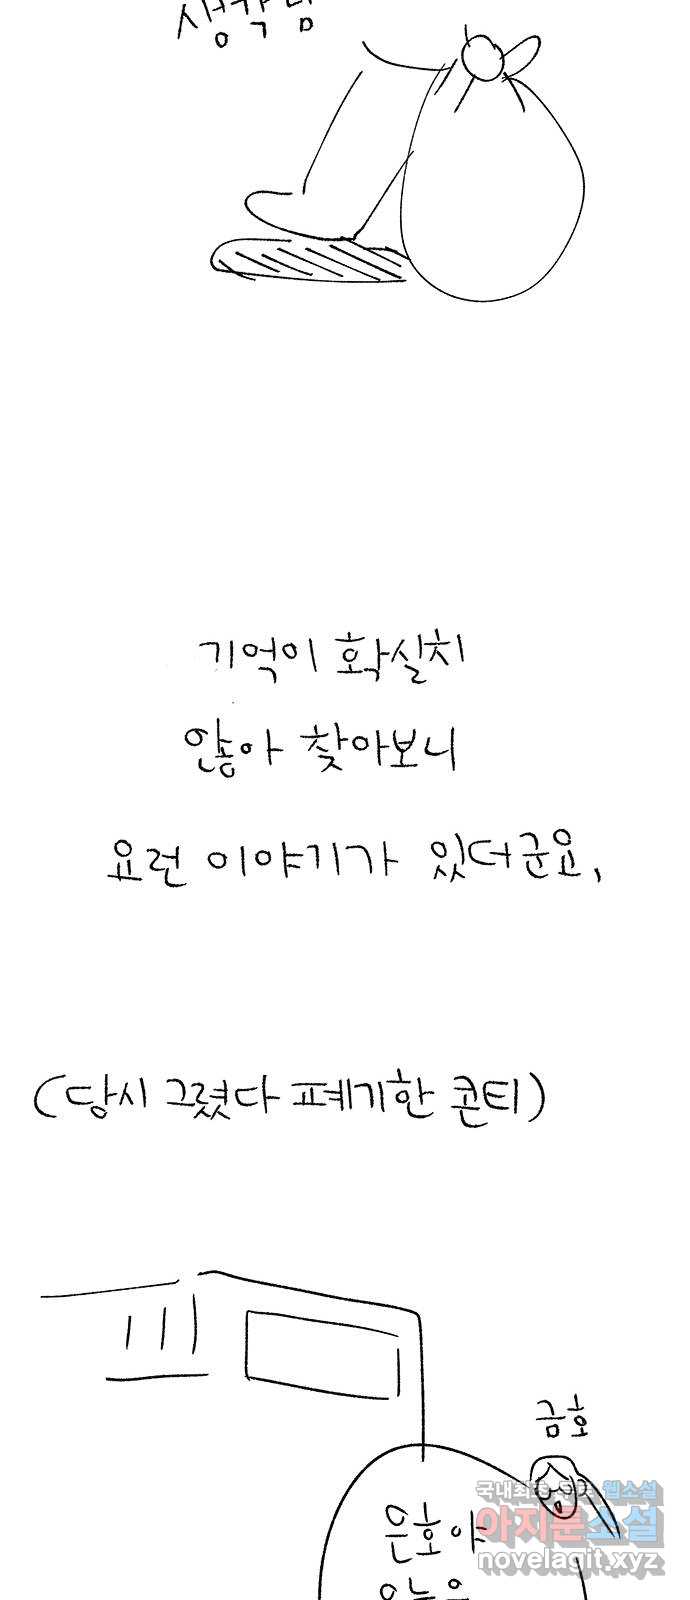 기억이 확실치
않아 찾아보니
요런 이야기가 있더군요,
(당시 그렸다 폐기한 콘티)
금호
은호야
아지툰소설
novelagit.xyz